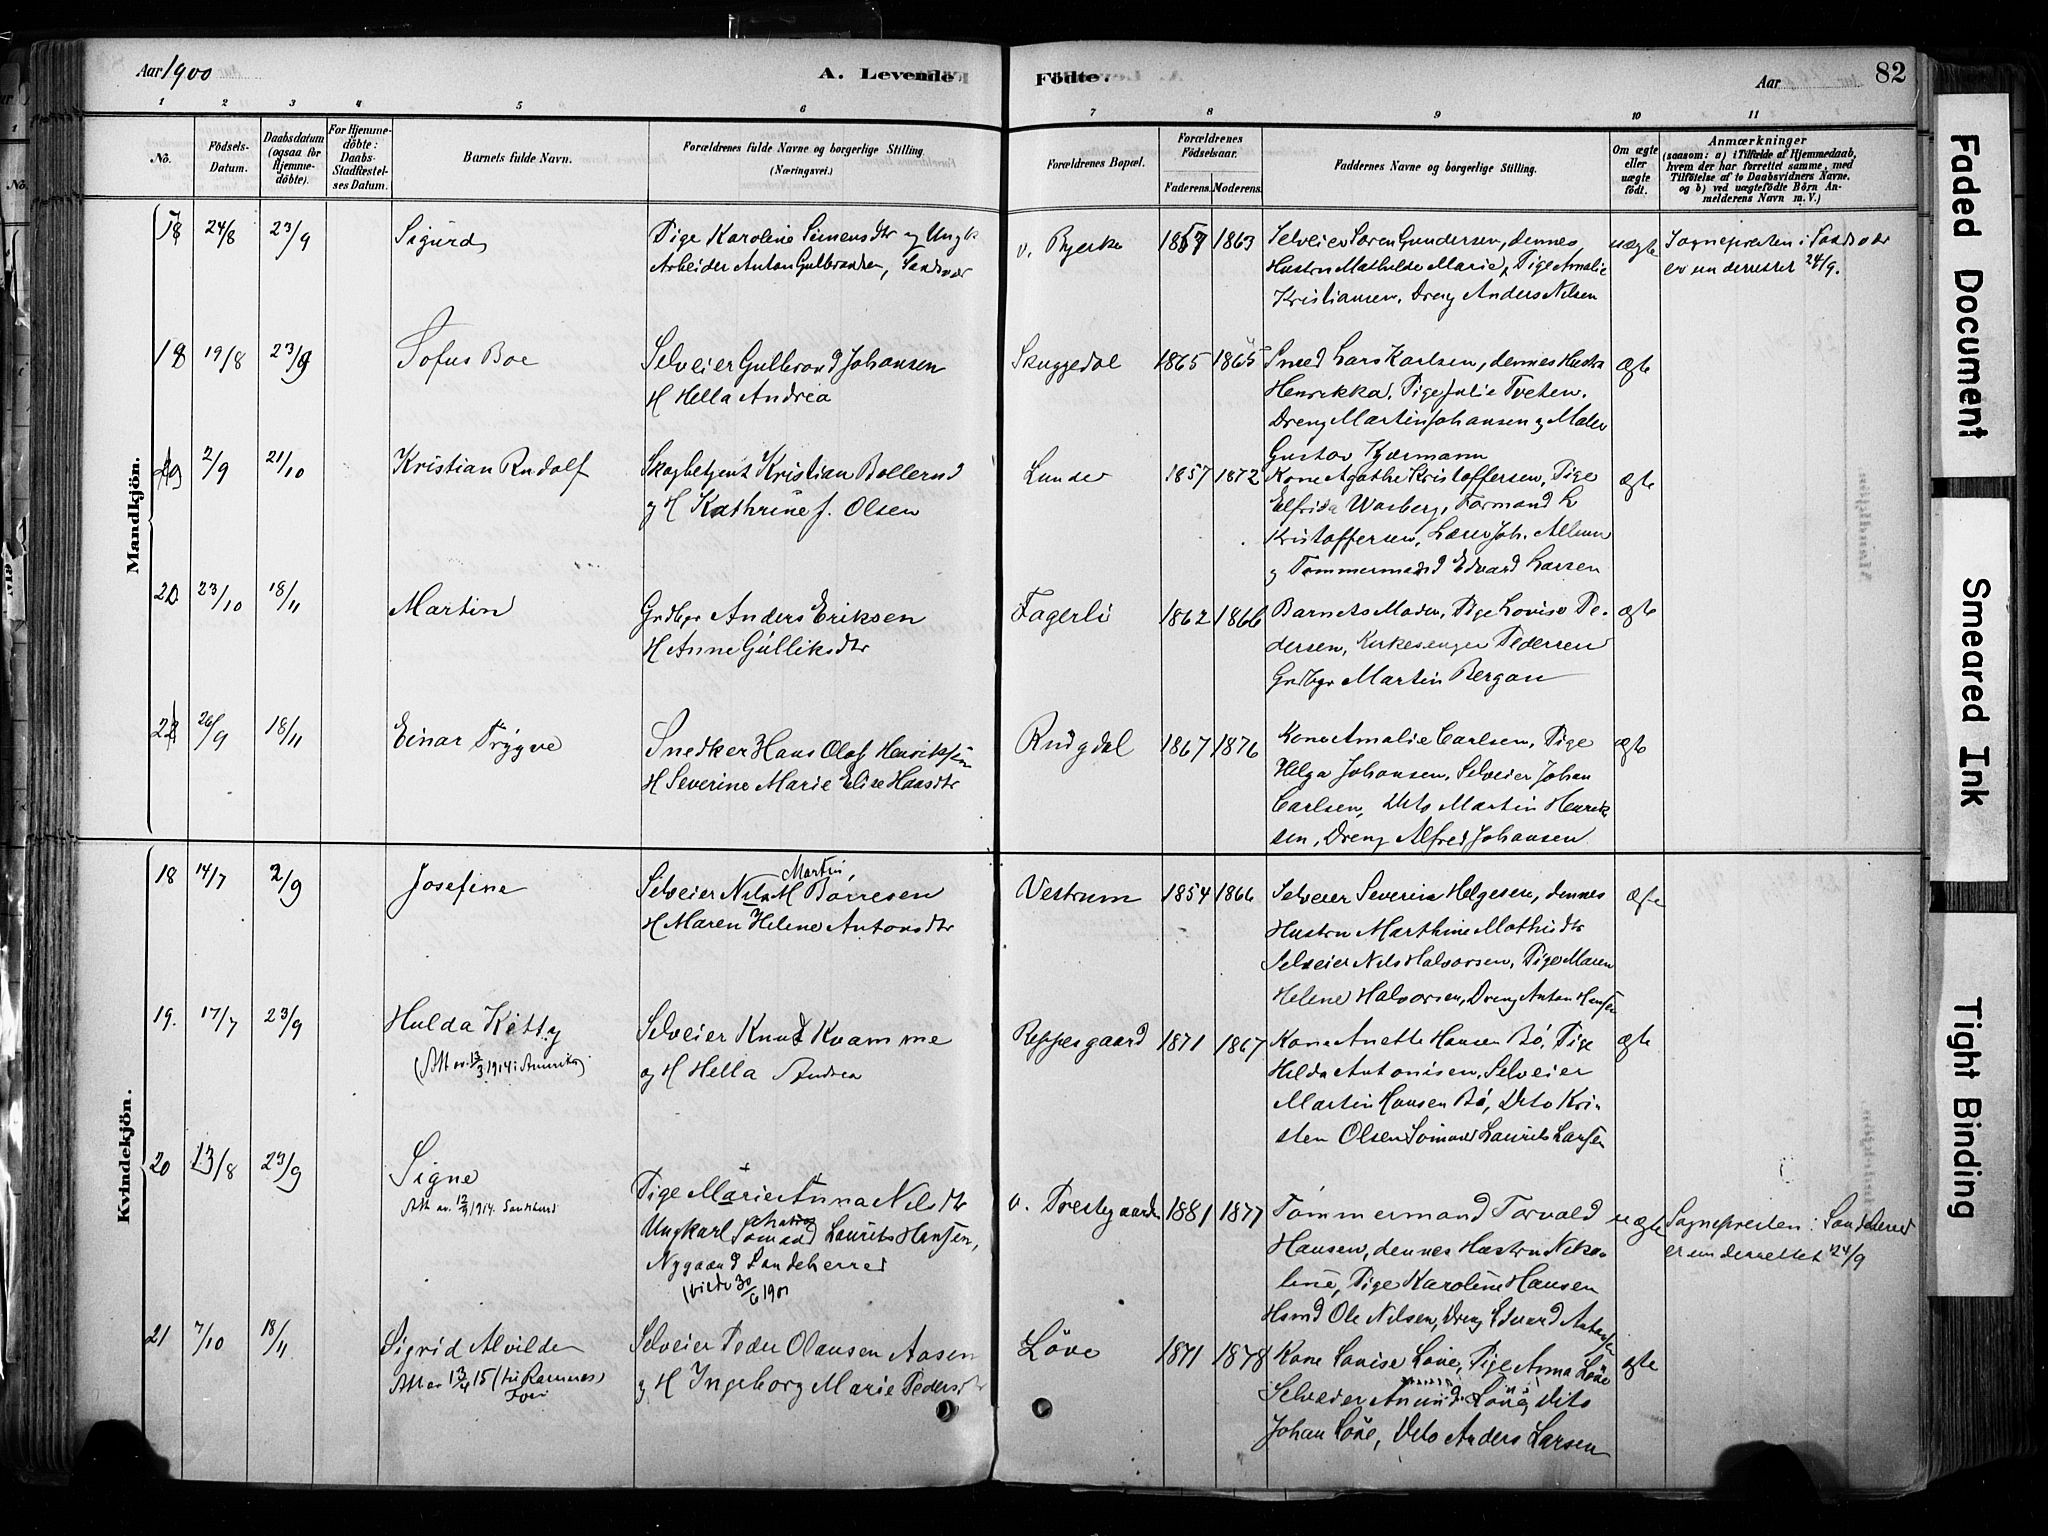 Aar 1900
A. Levende
Födte.
Aar
82
1 2 3 4 5 6 7 8 9 10 11
No.
Födsels-Datum.
Daabsdatum (ogsaa for Hjemme-döbte).
For Hjemme-döbte: Daabs-Stadfæstel-ses Datum.
Barnets fulde Navn.
Forældrenes fulde Navne og borgerlige Stilling (Næringsvei.)
Forældrenes Bopæl.
Forældrenes Födselsaar.
Faderens. Moderens.
Faddernes Navne og borgerlige Stilling.
Om ægte eller uægte födt.
Anmærkninger
(saasom: a) i Tilfælde af Hjemmedaab, hvem der har forrettet samme, med Tilföielse af to Daabsvidners Navne. og b) ved uægtefödte Börn An-melderens Navn m. V.)
Mandkjön.
24/8 23/9 Sigurd
Pige Karoline Simensdtr og Ungk
Arbeider Anton Gulbrandsen, Sandsvær
v. Bjerke 1863
Selveier Soren Gundersen, dennes
Hustru Mathilde Marie, Pige Amalie
Kristiansen, Dreng Anders Nilsen
uægte
Sognepresten i Sandsvær
er underrettet 24/9.
18 19/8 23/9 Sofus Boe
Selveier Gulbrand Johansen
H Hella Andrea
Skuggedal 1865 1865
Smed Lars Karlsen, dennes Hustru
Henrikka, Pige Julie Tveten,
Dreng Martin Johansen og Maler
Gustav
ægte
19 2/9 21/10 Kristian Rudolf
Skogbetjent Kristian Bollerud
og H Kathrine f. Olsen
Lunde 1857 1872
Kone Agathe Kristoffersen, Pige
Elfrida Warberg, Formand L
Kristoffersen, Lærer Joh.
og Tømmermand Edvard Larsen
ægte
20 23/10 18/11 Martin
Grdbgr Anders Eriksen
H Anne Gulliksdtr
Fagerli 1862 1866
Barnets Moder, Pige Lovise Pe-
dersen, Kirkesanger Pedersen
Grdbgr Martin Bergan
ægte
26/9 18/11 Einar Trygve
Snedker Hans Olaf Henriksen
H Severine Marie Elise Hansdtr
Rudgdal 1867 1876
Kone Amalie Carlsen, Pige
Helga Johansen, Selveier Johan
Carlsen, Dito Martin Henrik
sen, Dreng Alfred Johansen
ægte
Kvindekjön.
18 14/7 2/9 Josefine
Martin,
Selveier Nils M Borresen
H Maren Helene Antonsdtr
Vestrum 1854 1866
Selveier Severin Helgesen, dennes
Hustru Marthine Mathisdtr
Selveier Nils Halvorsen, Pige Maren
Helene Halvorsen, Dreng Anton Hansen
ægte
19. 17/7 23/9 Hulda Kitty
(Att av. 13/3 1914 i Amerika)
Selveier Knut Kvamme
og H Hella Andrea
Reppesgaard 1871 1867
Kone Anette Hansen Bö, Pige
Hilda Antonisen, Selveier
Martin Hansen Bö, Dito Kri-
sten Olsen Sömand Laurits Larsen
ægte
20 13/8 23/9 Signe
Pige Marie Anna Nilsdtr
Ungkarl Sömand Laurits Hansen,
Nygaard Sandeherred
(viede 30/6 1901
v. Prestegaarden 1881 1877
Tømmermand Torvald
Hansen, dennes Hustru Niko-
line, Pige Karoline Hansen
Hsmd Ole Nilsen, Dreng Edvard Antonsen
uægte
Sognepresten i Sandeherred
er underrettet 24/9
21 7/10 18/11 Sigrid Alvilde
Selveier Peder Olausen Aasen
og H Ingeborg Marie Pedersdtr
Löve 1871 1878
Kone Louise Löve, Pige Anna Löve
Selveier Amund Löve, Dito
Johan Löve, Dito Anders Larsen
ægte
Faded Document
Smeared Ink
Tight Binding